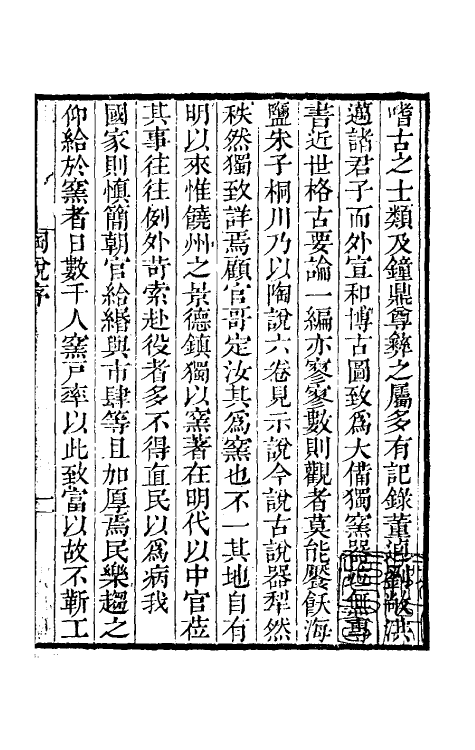 嗜古之士類及鐘鼎尊彝之屬多有記錄董逌劉敞洪
邁諸君子而外宣和博古圖致爲大備獨窯器無專
書近世格古要論一編亦寥寥數則觀者莫能饜飫海
鹽朱子桐川乃以陶說六卷見示說今說古說器犁然
秩然獨致詳焉顧官哥定汝其爲窯也不一其地自有
明以來惟饒州之景德鎮獨以窯著在明代以中官莅
其事往往例外苛索赴役者多不得直民以爲病我
國家則慎簡朝官給緡與市肆等且加厚焉民樂趨之
仰給於窯者日數千人窯戶率以此致富以故不靳工
陶說序
一